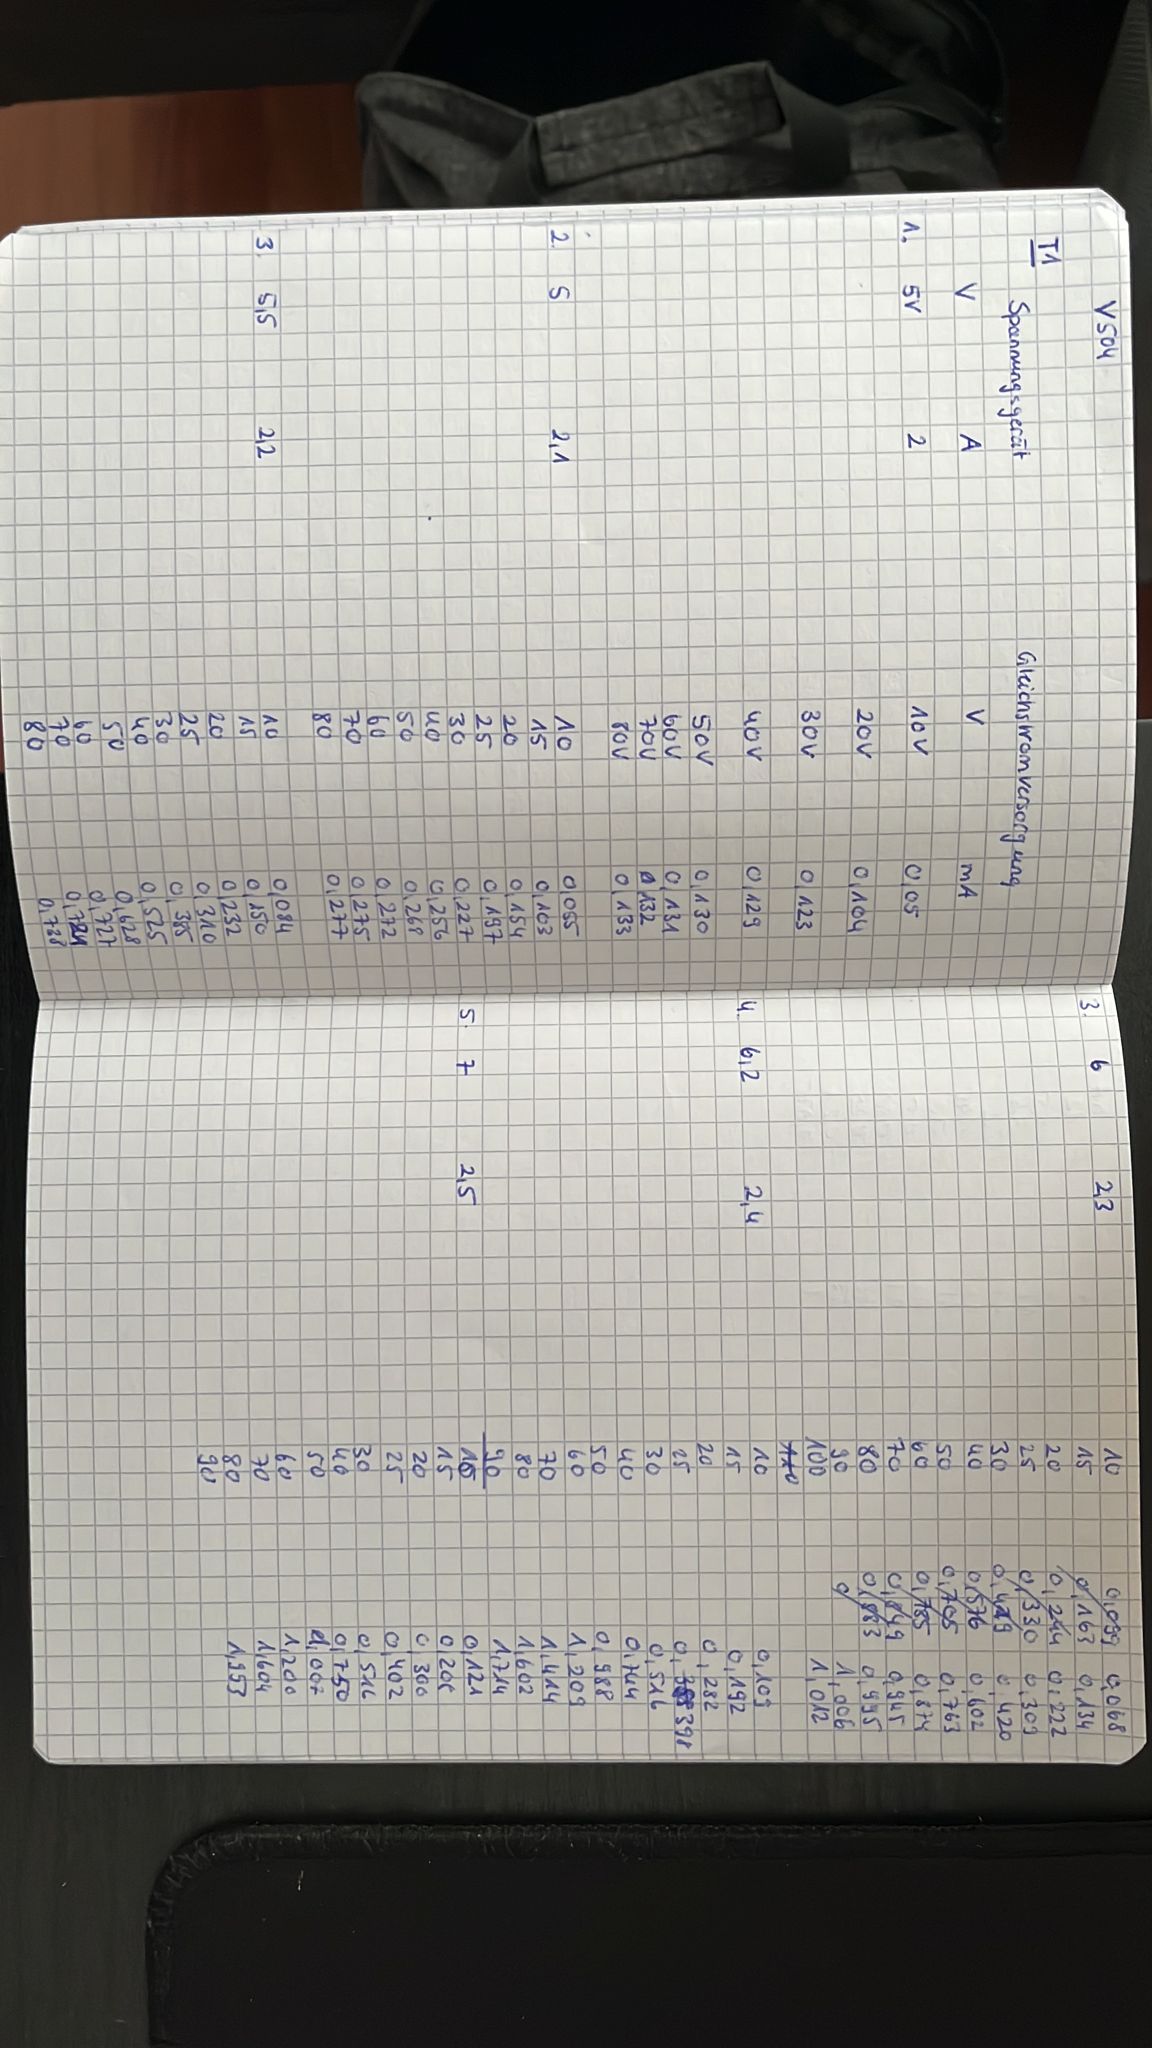 V504
T1
Spannungsgerät Gleichstromversorgung
V A V mA
1. 5V 2 10V 0,05
20V 0,104
30V 0,123
40V 0,129
50V 0,130
60V 0,131
70V 0,132
80V 0,133
2. 5 2,1 10 0,055
15 0,103
20 0,154
25 0,197
30 0,227
40 0,256
50 0,268
60 0,272
70 0,275
80 0,277
3. 5,5 2,2 10 0,084
15 0,150
20 0,232
25 0,310
30 0,385
40 0,525
50 0,628
60 0,727
70
80 0,738
3. 6 2,3 10 0,099 0,068
15 0,163 0,134
20 0,244 0,222
25 0,330 0,309
30 0,420
40 0,576 0,602
50 0,705 0,763
60 0,785 0,874
70 0,849 0,945
80 0,883 0,995
90 0 1,006
100 1,012
110
4. 6,2 2,4 10 0,109
15 0,192
20 0,282
25 0, 398
30 0,516
40 0,744
50 0,988
60 1,209
70 1,414
80 1,602
90 1,714
5. 7 2,5 10 0,121
15
20 0,300
25 0,402
30 0,516
40 0,750
50 1,007
60 1,200
70 1,604
80 1,953
90